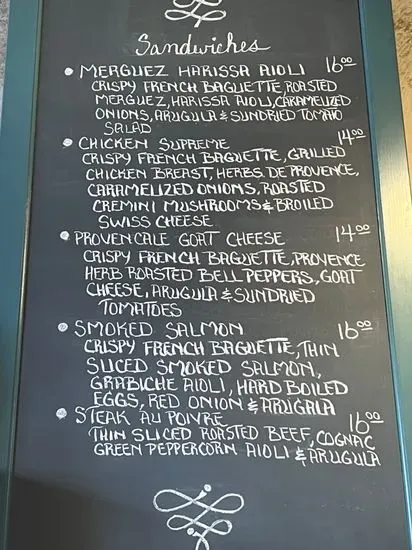 Sandwiches
• MERGUEZ HARISSA AIOLI 16.00
CRISPY FRENCH BAGUETTE, ROASTED
MERGUEZ, HARISSA AIOLI, CARAMELIZED
ONIONS, ARUGULA & SUNDRIED TOMATO
SALAD
• CHICKEN SUPREME 14.00
CRISPY FRENCH BAGUETTE, GRILLED
CHICKEN BREAST, HERBS DE PROVENCE,
CARAMELIZED ONIONS, ROASTED
CREMINI MUSHROOMS & BROILED
SWISS CHEESE
• PROVENCALE GOAT CHEESE 14.00
CRISPY FRENCH BAGUETTE, PROVENCE
HERB ROASTED BELL PEPPERS, GOAT
CHEESE, ARUGULA & SUNDRIED
TOMATOES
• SMOKED SALMON 16.00
CRISPY FRENCH BAGUETTE, THIN
SLICED SMOKED SALMON,
GRABICHE AIOLI, HARD BOILED
EGGS, RED ONION & ARUGALA
• STEAK AU POIVRE 16.00
THIN SLICED ROASTED BEEF, COGNAC
GREEN PEPPERCORN AIOLI & ARUGULA